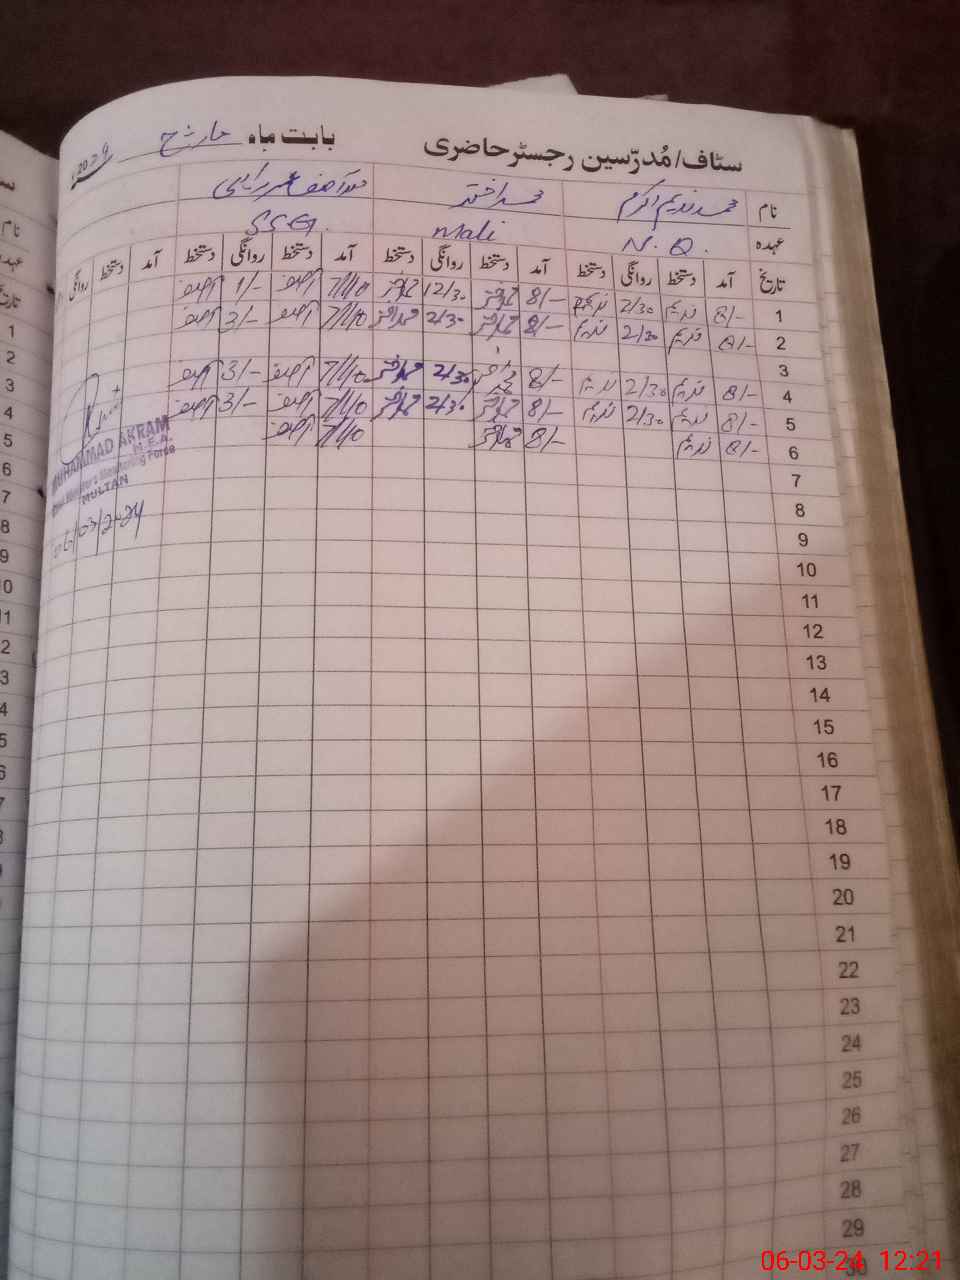 سٹاف/مُدرّسین رجسٹر حاضری بابت ماہ مارچ 2024
نام محمد ندیم اکرم محمد اختر
عہدہ N.Q. Mali SSE
تاریخ آمد دستخط روانگی دستخط آمد دستخط روانگی دستخط آمد دستخط روانگی دستخط آمد دستخط روانگی
1 8/- ندیم 2/30 ندیم 8/- محمد اختر 12/30 محمد اختر 7/40 آصف 1/- آصف
2 8/- ندیم 2/30 ندیم 8/- محمد اختر 2/30 محمد اختر 7/40 آصف 3/- آصف
3
4 8/- ندیم 2/30 ندیم 8/- محمد اختر 2/30 محمد اختر 7/40 آصف 3/- آصف
5 8/- ندیم 2/30 ندیم 8/- محمد اختر 2/30 محمد اختر 7/40 آصف 3/- آصف
6 8/- ندیم 8/- محمد اختر 7/40 آصف
MUHAMMAD AKRAM
M.E.A.
Monitoring Force
MULTAN
06/03/2024
7
8
9
10
11
12
13
14
15
16
17
18
19
20
21
22
23
24
25
26
27
28
29
30
06-03-24 12:21